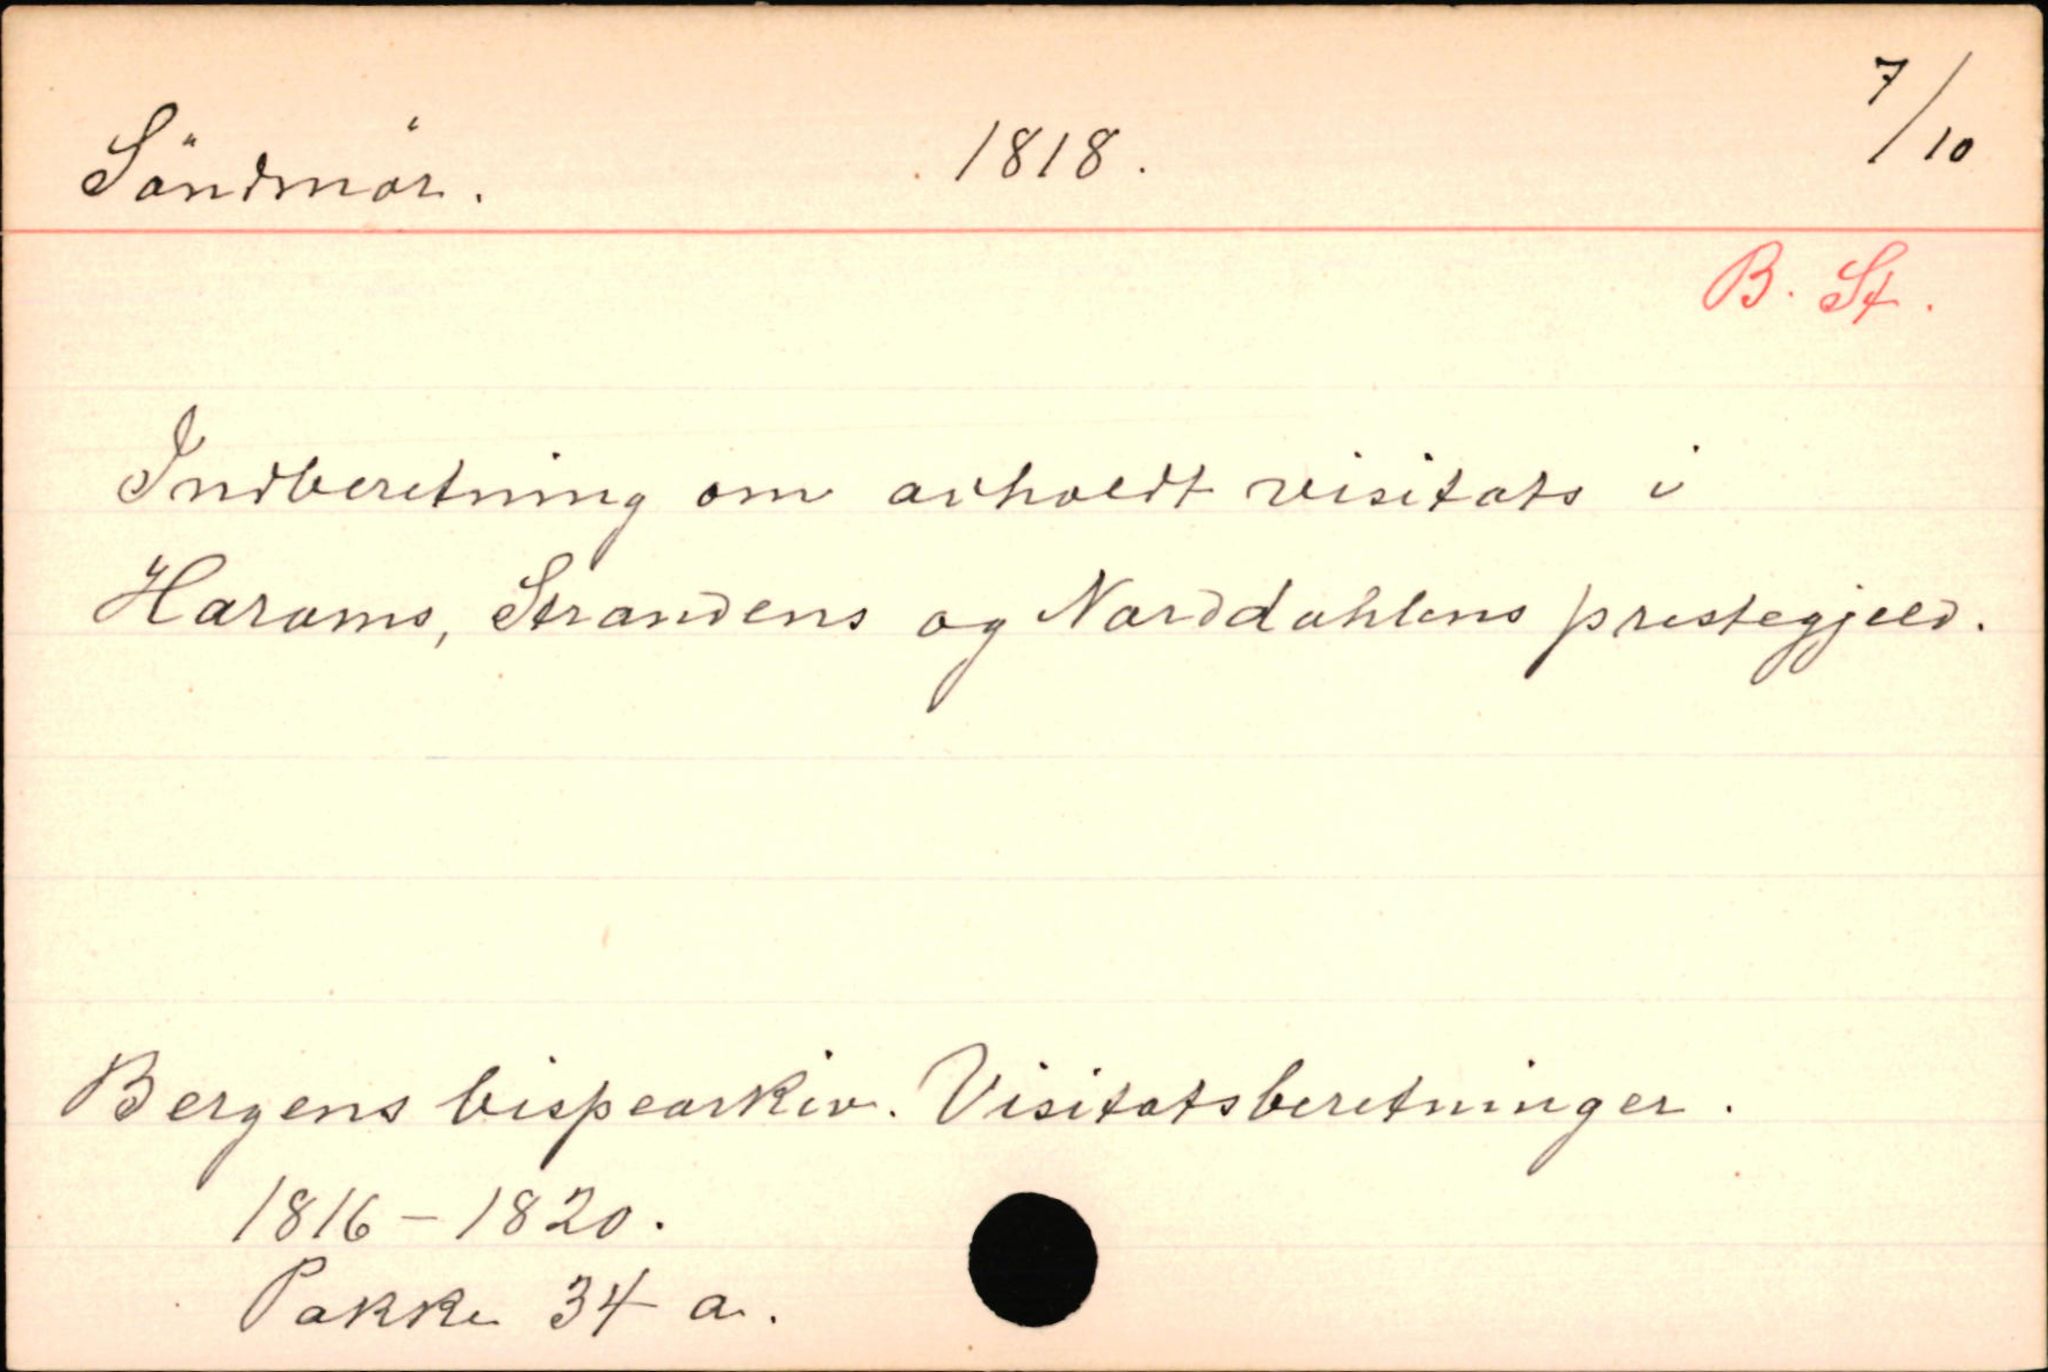 Söndmör. 1818. 7/10
B. St.
Indberetning om avholdt visitats i
Harams, Strandens og Norddahlens prestegjeld.
Bergens bispearkiv. Visitatsberetninger.
1816-1820.
Pakke 34 a.